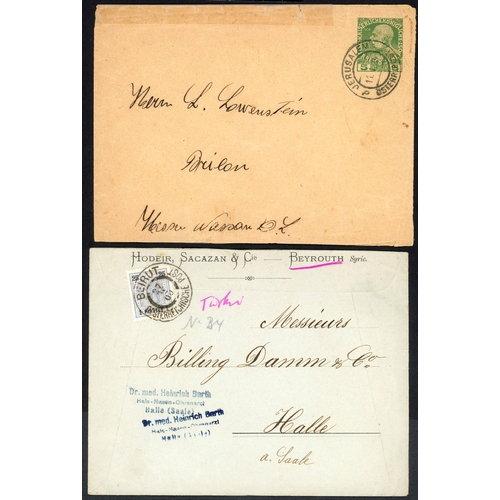 JERUSALEM
ÖSTERR. P
Herrn L. Lowenstein
Brilon
Hodeir, Sacazan & Cie — Beyrouth Syrie.
BEIRUT
ÖSTERREICHISCHE POST
N 34
Messieurs
Billing Damm & Co
Halle
a. Saale
Dr. med. Heinrich Barth
Hals-Nasen-Ohrenarzt
Halle (Saale)
Dr. med. Heinrich Barth
Hals-Nasen-Ohrenarzt
Halle (Saale)